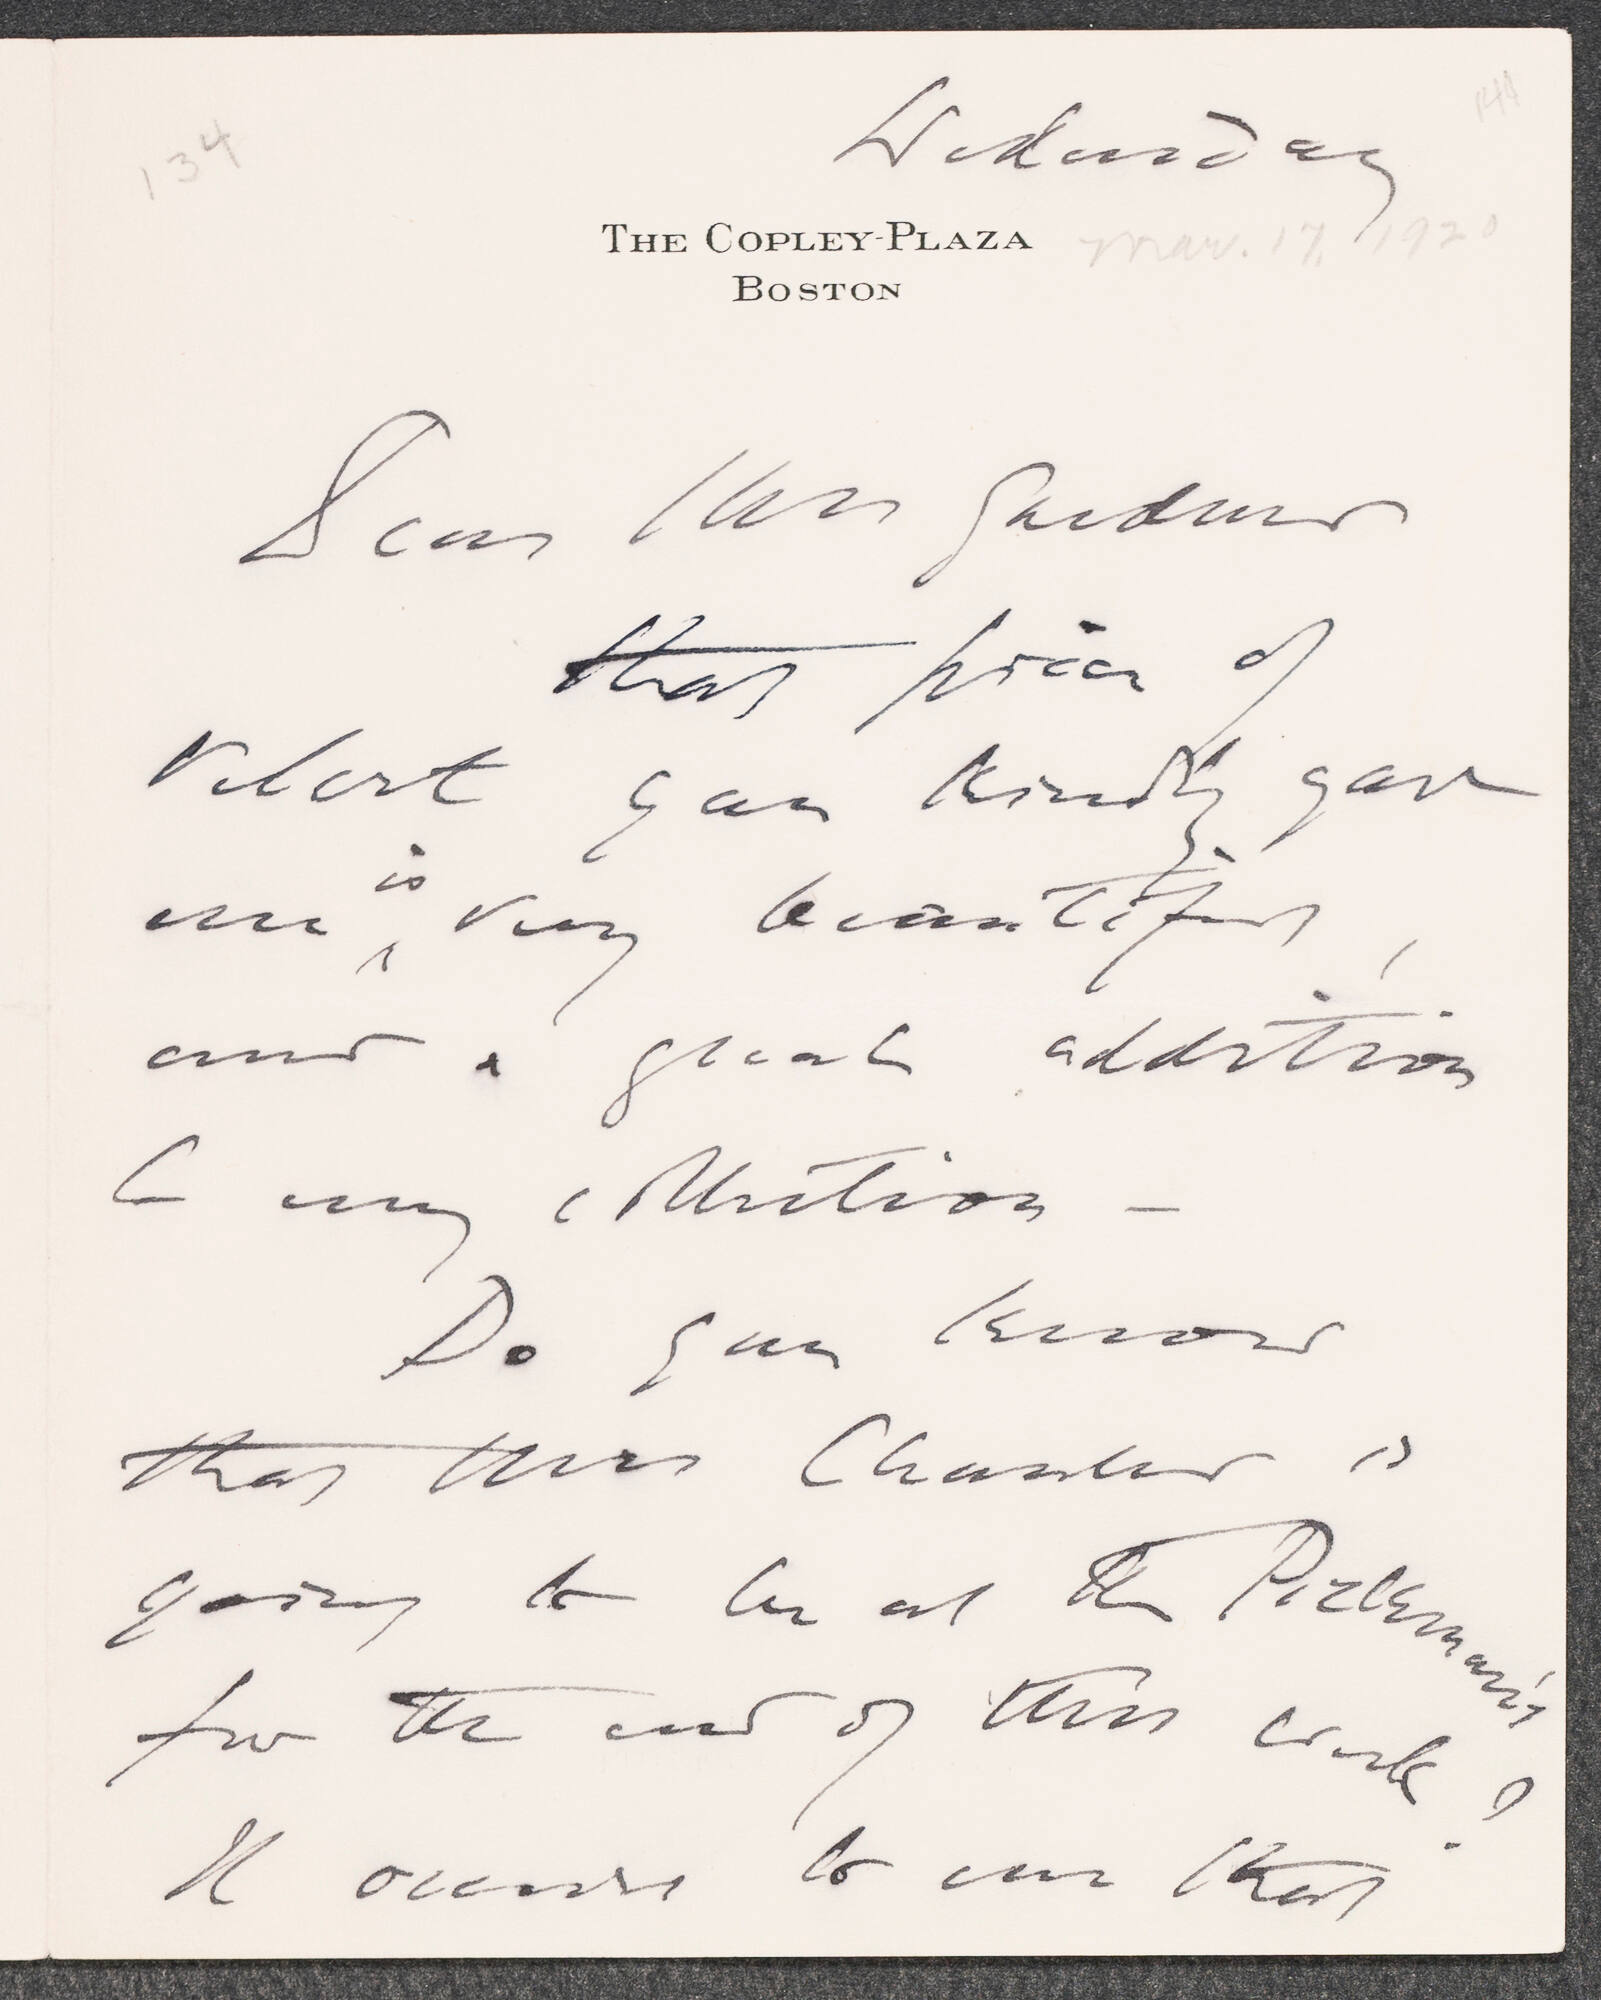 134
Wednesday
THE COPLEY-PLAZA
Mar. 17, 1920
BOSTON
Dear Mrs Gardner
That piece of
velvet you kindly gave
me is very beautiful,
and a great addition
to my collection —
Do you know
that Mrs Chanler is
going to be at the Pickman's
for the end of this week?
It occurs to me that